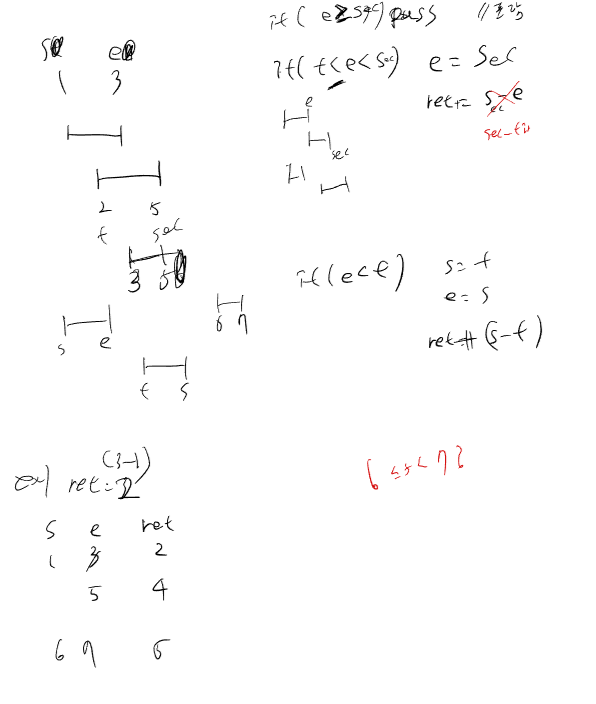 if( e≥sec) pass //포함
s e
1 3
if( f<e<sec) e = sec
ret+= s-e
sec
sec-
e
sec
2 5
f sec
3 5
if(e<f) s=f
e=s
ret+= (s-f)
6 7
s e
f s
(3-1)
ex) ret=2
s e ret
1 3 2
5 4
6 7 5